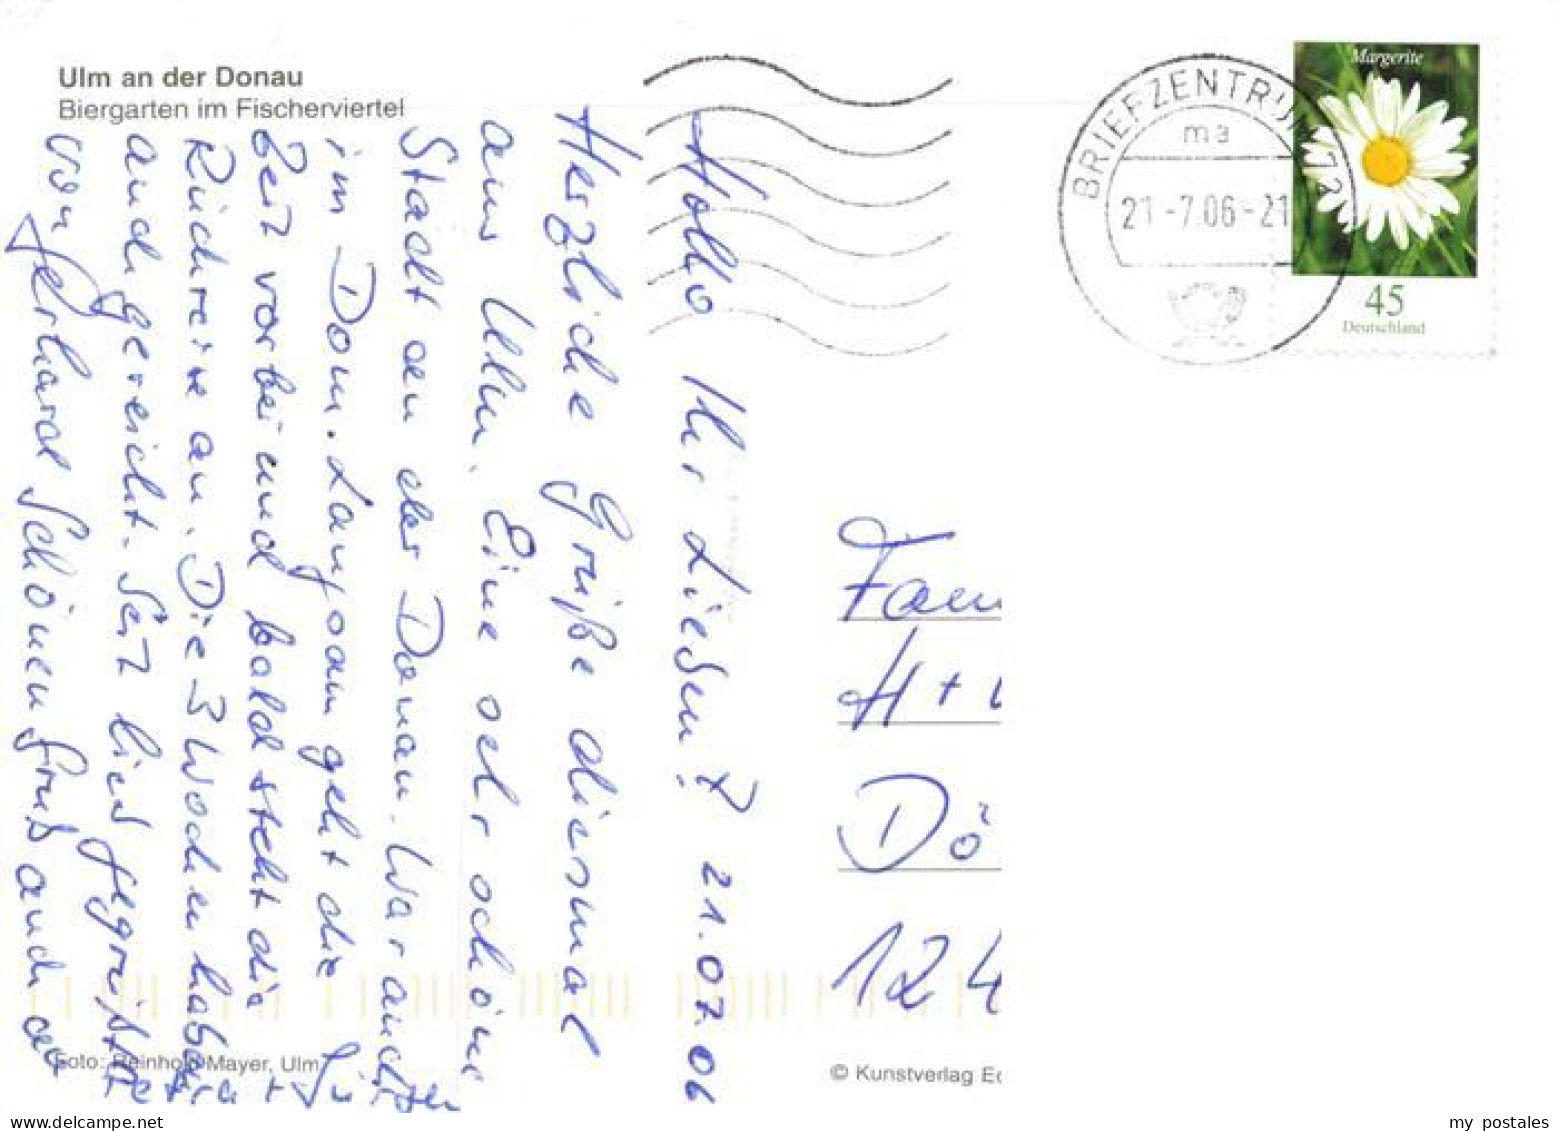 Ulm an der Donau
Biergarten im Fischerviertel
Hallo Ihr Lieben! 21.07.06
Herzliche Grüße diesmal
aus Ulm. Eine sehr schöne
Stadt an der Donau. War auch
im Dom. Langsam geht die
Zeit vorbei und bald steht die
Rückreise an. Die 3 Wochen haben
auch gereicht. Seit lieb gegrüßt
von Gerhard Schönen Gruß auch an
Fam
H +
Dö
124
BRIEFZENTRUM 72
ma
21.-7.06-21
Margerite
45
Deutschland
Foto: Reinhold Mayer, Ulm
© Kunstverlag Ec
my postales